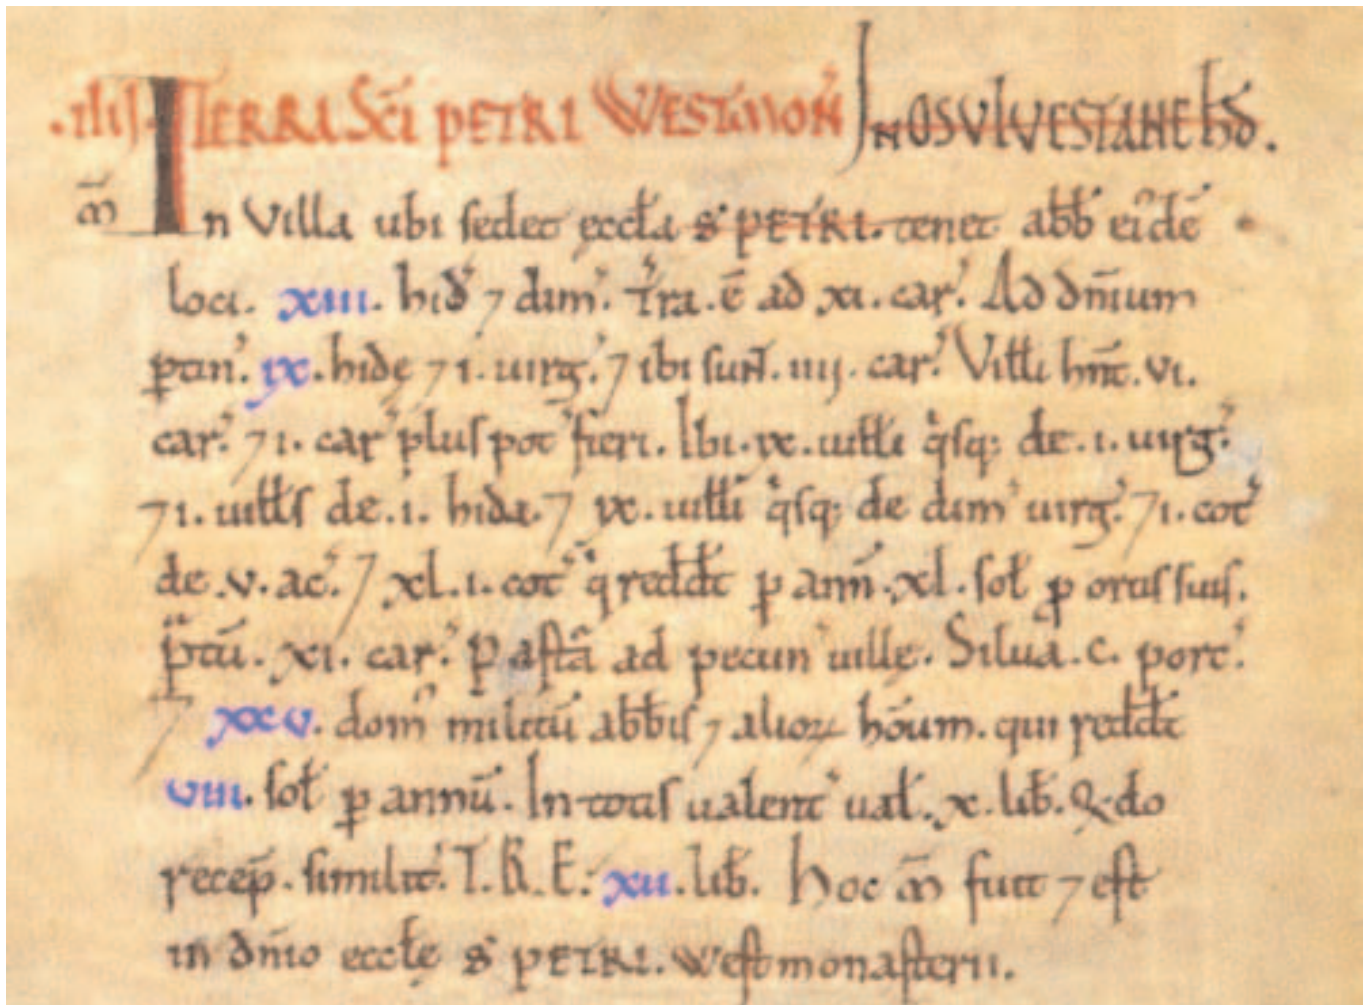 .IIII. TERRA SCI PETRI WESTMON̄ IN OSULVESTANE HD̄.
M̄ In Villa ubi sedet æccła S̄ PETRI. tenet abb̄ eiꝰdē
loci. xiii. hid̄ ⁊ dim̓. Tr̄a. ē ad xi. car̓. Ad dn̄ium
ꝑtin̓. ix. hidę ⁊ i. uirg̓. ⁊ ibi sun̄t. iiij. car̓. Vitti hn̄t. vi.
car̓. ⁊ i. car̓ plus pot̓ fieri. Ibi. ix. uitti qͥsq; de. i. uirg̓.
⁊ i. uitts de. i. hida. ⁊ ix. uitti qͥsq; de dim̓ uirg̓. ⁊ i. cot̓
de. v. ac̓. ⁊ xl. i. cot̓ qͥ redd̄t ꝑ ann̄. xl. soł ꝓ ortis suis.
Pͣtū. xi. car̓. Pastā ad pecun̓ uillę. Silua. c. porc̓.
⁊ xxv. dom̓ militū abb̄is ⁊ alioꝝ hōum. qui redd̄t
viii. soł ꝑ annū. In totis ualent̓ uał. x. lib̄. Q̄do
recep̄. similit̓. T. R. E. xii. lib̄. Hoc M̄ fuit ⁊ est
in dn̄io eccłę S̄ PETRI. westmonasterii.